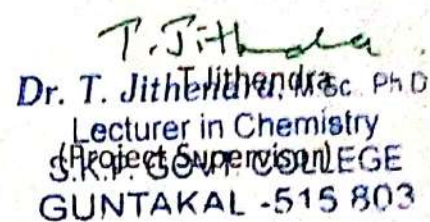 T. Jithendra
Dr. T. Jithendra, M.Sc. Ph.D
T. Jithendra
Lecturer in Chemistry
(Project Supervisor)
S.K.P. GOVT. COLLEGE
GUNTAKAL -515 803